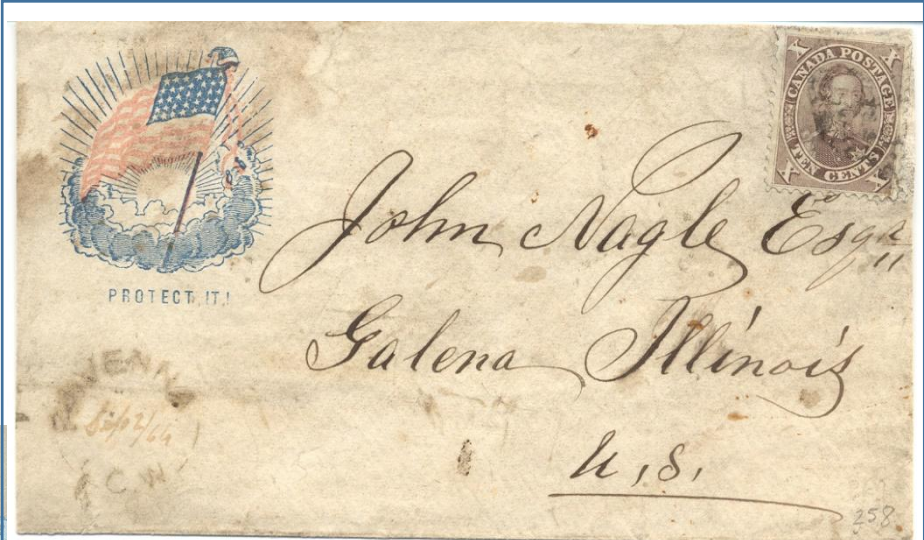 CANADA POSTAGE
TEN CENTS
X X X X
PROTECT IT!
John Nagle Esqr
Galena Illinois
U.S.
RAVENNA
Sep 2/64
C.W.
258